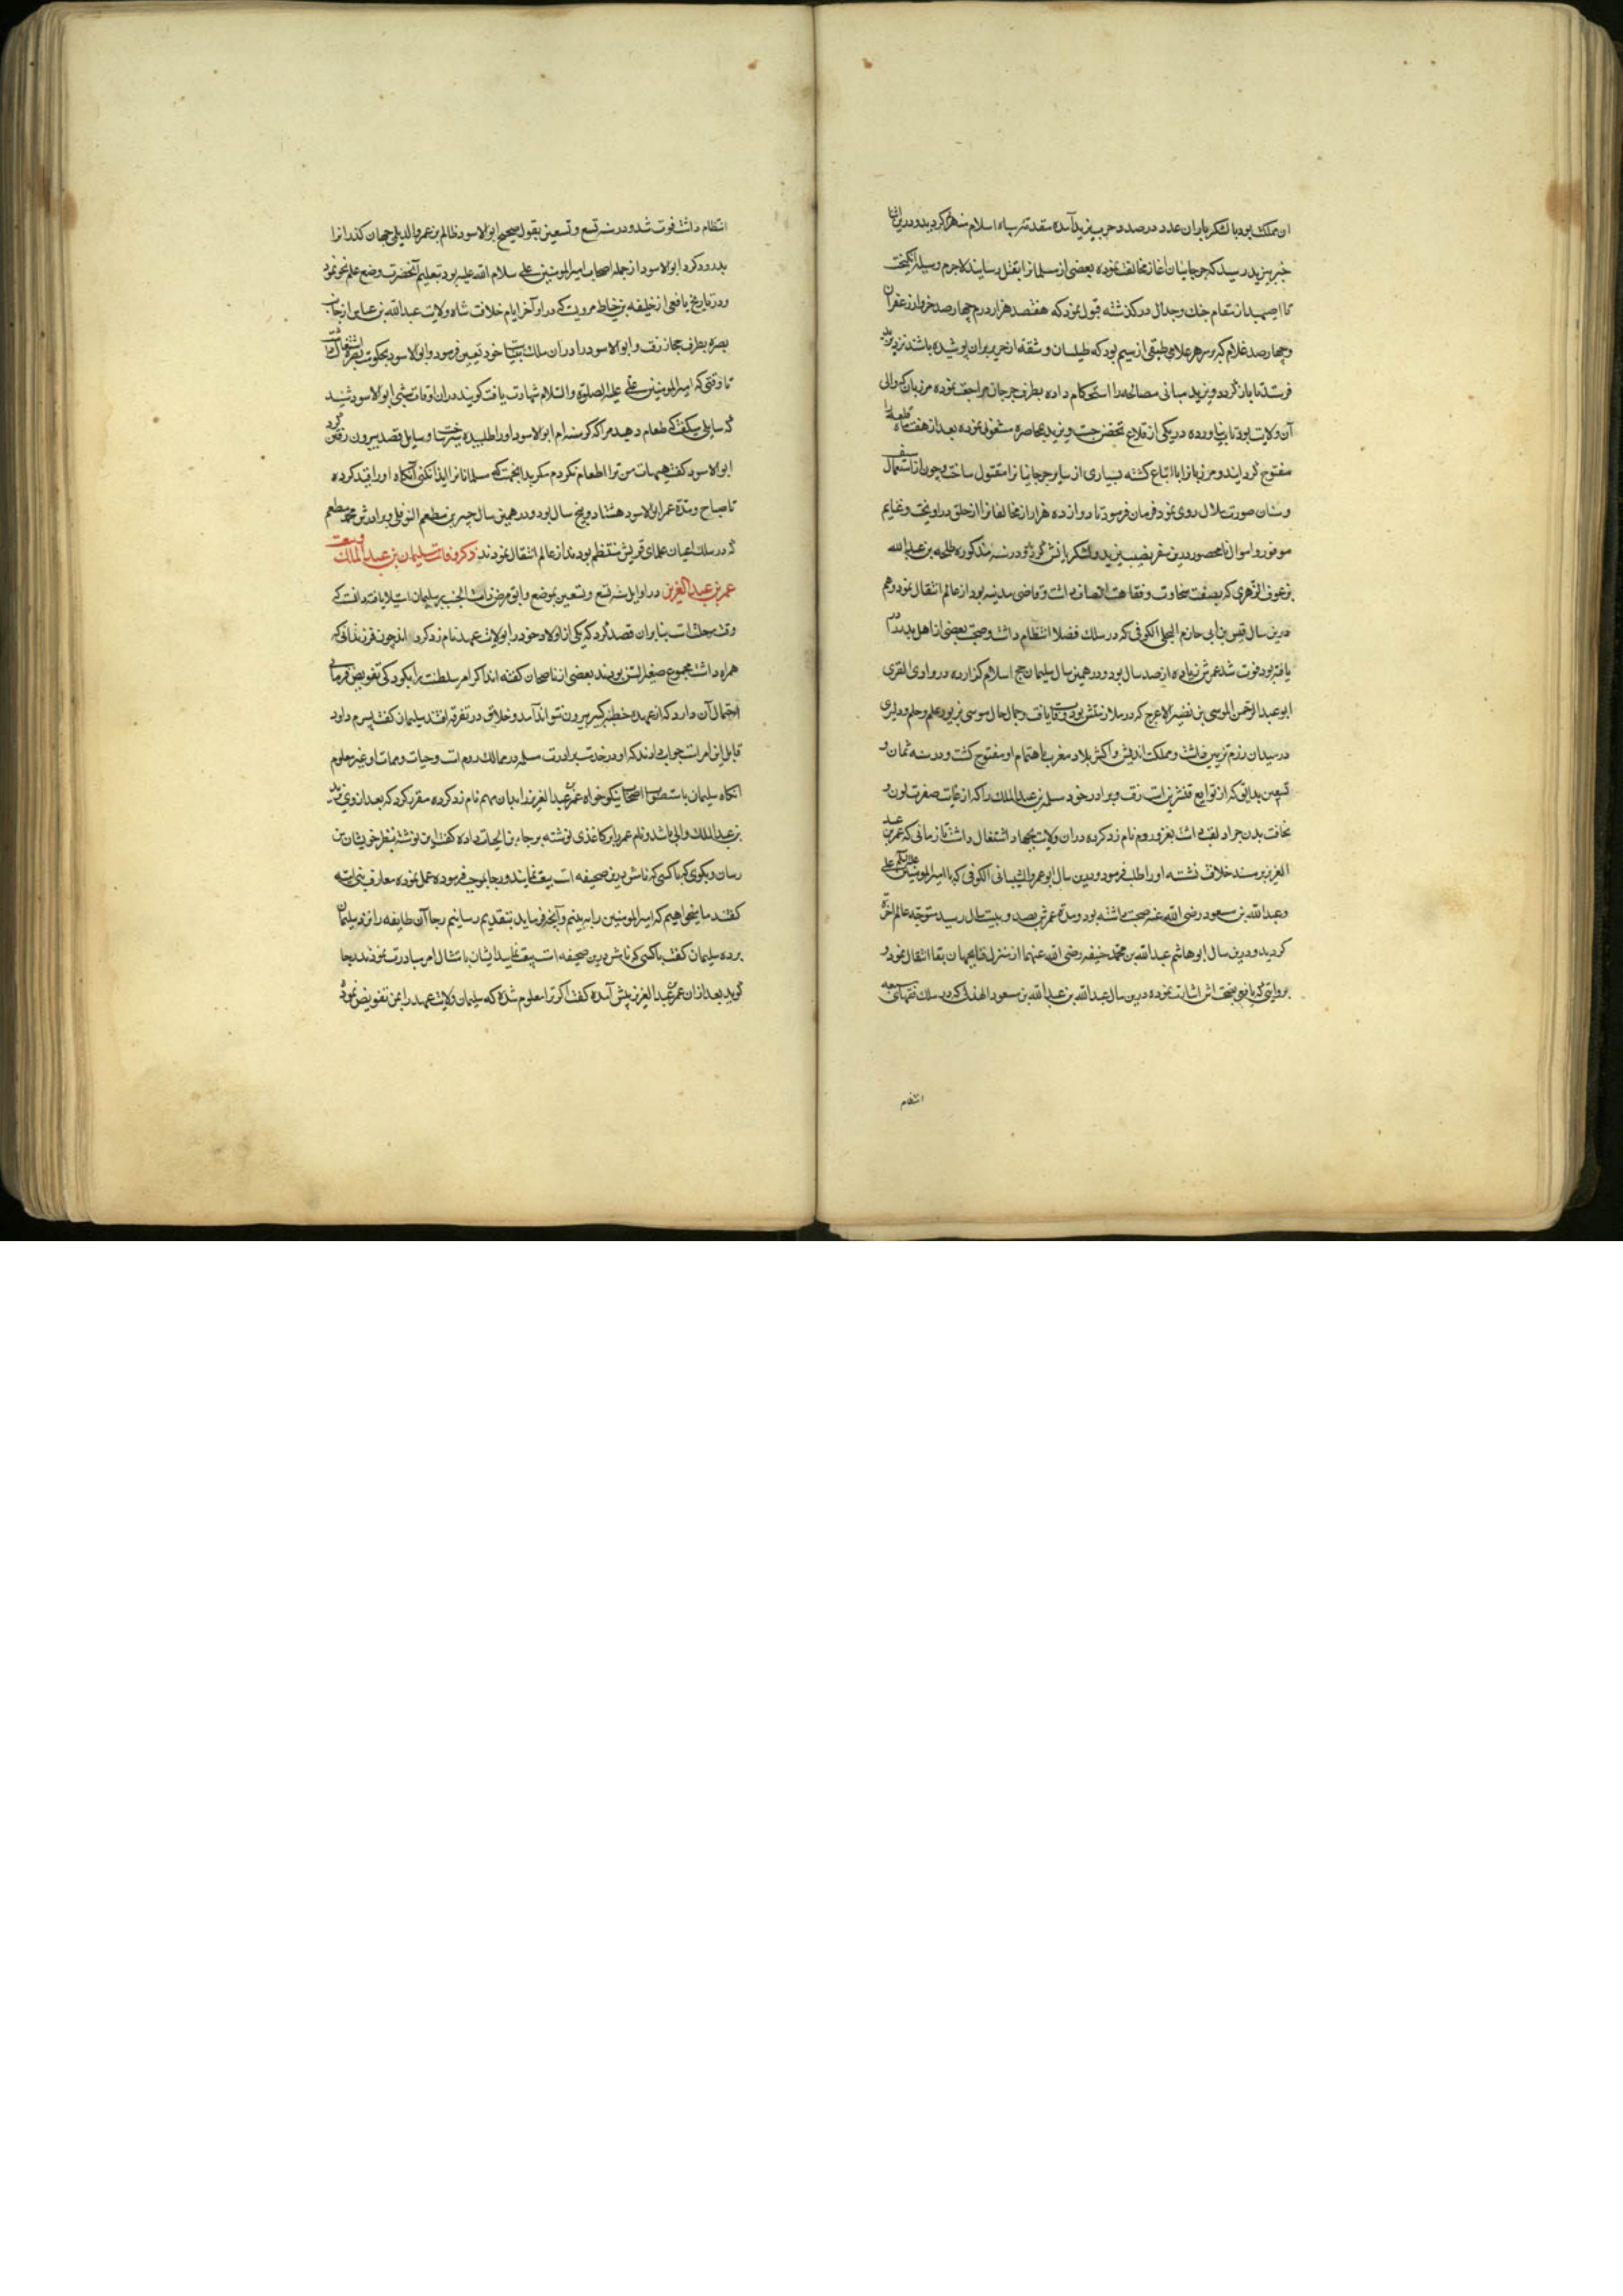 ان مملکت بود با لشکر باران عدد در صدد حرب یزید آمده مقدمه سپاه اسلام منهزم کردیدو درین اثنا
خبر بیزید رسید که جرجانیان آغاز مخالفت نموده بعضی از مسلمانرا بقتل رسانیدند لاجرم وسیله انکیخت
تا اصبهبد از مقام جنك وجدال درکذشته قبول نمود که هفتصد هزار درم چهارصد خروار زعفران
وچهارصد غلام که بر سر هر غلامی طبقی از سیم بود که طیلسان و شقه از حریر بران پوشیده باشند نزد یزید
فرستد تا باز کردد ویزید مبانی مصالحه را استحکام داده بطرف جرجان مراجعت نموده مرزبان که والی
آن ولایت بود تاب نیاورده در یکی از قلاع تحصن جست ویزید بمحاصره مشغولی نموده بعد از هفت ماه قلعه را
مفتوح کردانید و مرزبانرا با اتباع کشته بسیاری از سایر جرجانیانرا مقتول ساخت وچون از استعمال سیف
وسنان صورت ملال روی نمود فرمان فرمود تا دوازده هزار از مخالفانرا از حلق در اویختند وغنایم
موفور و اموال نامحصور درین سفر نصیب یزید ولشکریانش کردید ودر سنه مذکوره طلحه بن عبدالله
بن عوف الزهری که بصفت سخاوت و فقاهت اتصاف داشت وقاضی مدینه بود از عالم انتقال نمود وهم
درین سال قیس بن ابی حازم البجلی الکوفی که در سلك فضلا انتظام داشت وصحبت بعضی از اهل بدر در
یافته بود فوت شد عمرش زیاده از صد سال بود ودر همین سال سلیمان حج اسلام کزارده در وادی القری
ابو عبدالرحمن الموسی بن نضیر الاعرج که در ملازمتش بود وفات یافت وجمال حال موسی بزیور علم وحلم ودلیری
در میدان رزم تزیین داشت ومملکت اندلس واکثر بلاد مغرب باهتمام او مفتوح کشت ودر سنه ثمان و
تسعین بدابق که از توابع قنسرین است رفت وبرادر خود مسلمه بن عبدالملك را که از غایت صفرت لون و
نحافت بدن جراد لقب داشت بغزو روم نام زد کرده دران ولایت بجهاد اشتغال داشت تا زمانی که عمر بن عبد
العزیز بر مسند خلافت نشسته او را طلب فرمود ودرین سال ابو عمرو الشیبانی الکوفی که با امیرالمومنین علی
وعبدالله بن مسعود رضی الله عنه صحبت داشته بود ومدة عمرش بصد وبیست سال رسید متوجه عالم آخرة
کردید ودرین سال ابوهاشم عبدالله بن محمد حنیفه رضی الله عنهما از منزل فنا بجهان بقا انتقال نمود و
بروایتی که یافعی بصحت اش اشارت نموده درین سال عبدالله بن عبدالله بن مسعود الهذلی که در سلك فقهای سبعه
انتظام
انتظام داشت فوت شد ودر سنه تسع وتسعین بقول صحیح ابوالاسود ظالم بن عمرو الدیلی جهان کذرانرا
بدرود کرد ابوالاسود از جمله اصحاب امیرالمومنین علی سلام الله علیه بود بتعلیم آنحضرت وضع علم نحو نمود
ودر تاریخ یافعی از خلیفه بن خیاط مرویست که در اواخر ایام خلافت شاه ولایت عبدالله بن عباس از جانب
بصره بطرف حجاز رفت وابوالاسود را در آن ملك بنیابت خود تعیین فرمود وابوالاسود بحکومت بصره اشتغال داشت
تا وقتی که امیرالمومنین علی علیه الصلوة والسلام شهادت یافت کویند دران اوقات شبی ابوالاسود شنید
که سایلی میکفت که طعام دهید مرا که کرسنه ام ابوالاسود او را طلبیده سیر ساخت وسایل قصد بیرون رفتن کرد
ابوالاسود کفت هیهات من ترا اطعام نکردم مکر بدانجهت که مسلمانانرا ایذا نکنی آنکاه او را قید کرده
تا صباح ومدة عمر ابوالاسود هشتاد وپنج سال بود ودر همین سال جبیر بن مطعم النوفلی وبرادرش محمد مطعم
که در سلك اعیان علمای قریش منتظم بودند از عالم انتقال نمودند ذکر وفات سلیمان بن عبدالملك وبیعت
عمر بن عبدالعزیز در اوایل سنه تسع وتسعین بموضع وابق مرض ذات الجنب بر سلیمان استیلا یافته دانست که
وقت رحلتست بنابران قصد کرد که یکی از اولاد خود را بولایت عهد نام زد کرداند چون فرزندانی که
همراه داشت مجموع صغیرالسن بودند بعضی از ناصحان کفته اند اکر امر سلطنت را بکودکی تفویض فرمائی
احتمال آن دارد که از عهده خطب کبیر بیرون نتواند آمد وخلایق در تفرقه افتند سلیمان کفت پسرم داود
قابل این امر است جواب دادند که او در خدمت برادرت مسلمه در ممالك روم است وحیات وممات او غیر معلوم
آنکاه سلیمان باستصواب اصحاب نیکو خواه عمر بن عبدالعزیز را بدان مهم نام زد کرده مقرر کرد که بعد از وی یزید
بن عبدالملك والی باشد ونام عمر را بر کاغذی نوشته برجاء بن الحیات داده کفت این نوشته بنظر خویشان من
رسان وبکوی که با کسی که نامش درین صحیفه است بیعت نمایند ورجا بموجب فرموده عمل نموده معارف بنی امیه
کفتند ما میخواهیم که امیرالمومنین را به بینیم وآنچه فرماید بتقدیم رسانیم رجا آن طایفه را نزد سلیمان
برده سلیمان کفت با کسی که نامش درین صحیفه است بیعت نمایید ایشان بامتثال امر مبادرت نمودند رجا
کوید بعد ازان عمر بن عبدالعزیز پیش آمده کفت اکر ترا معلوم شده که سلیمان ولایت عهد را بمن تفویض نموده